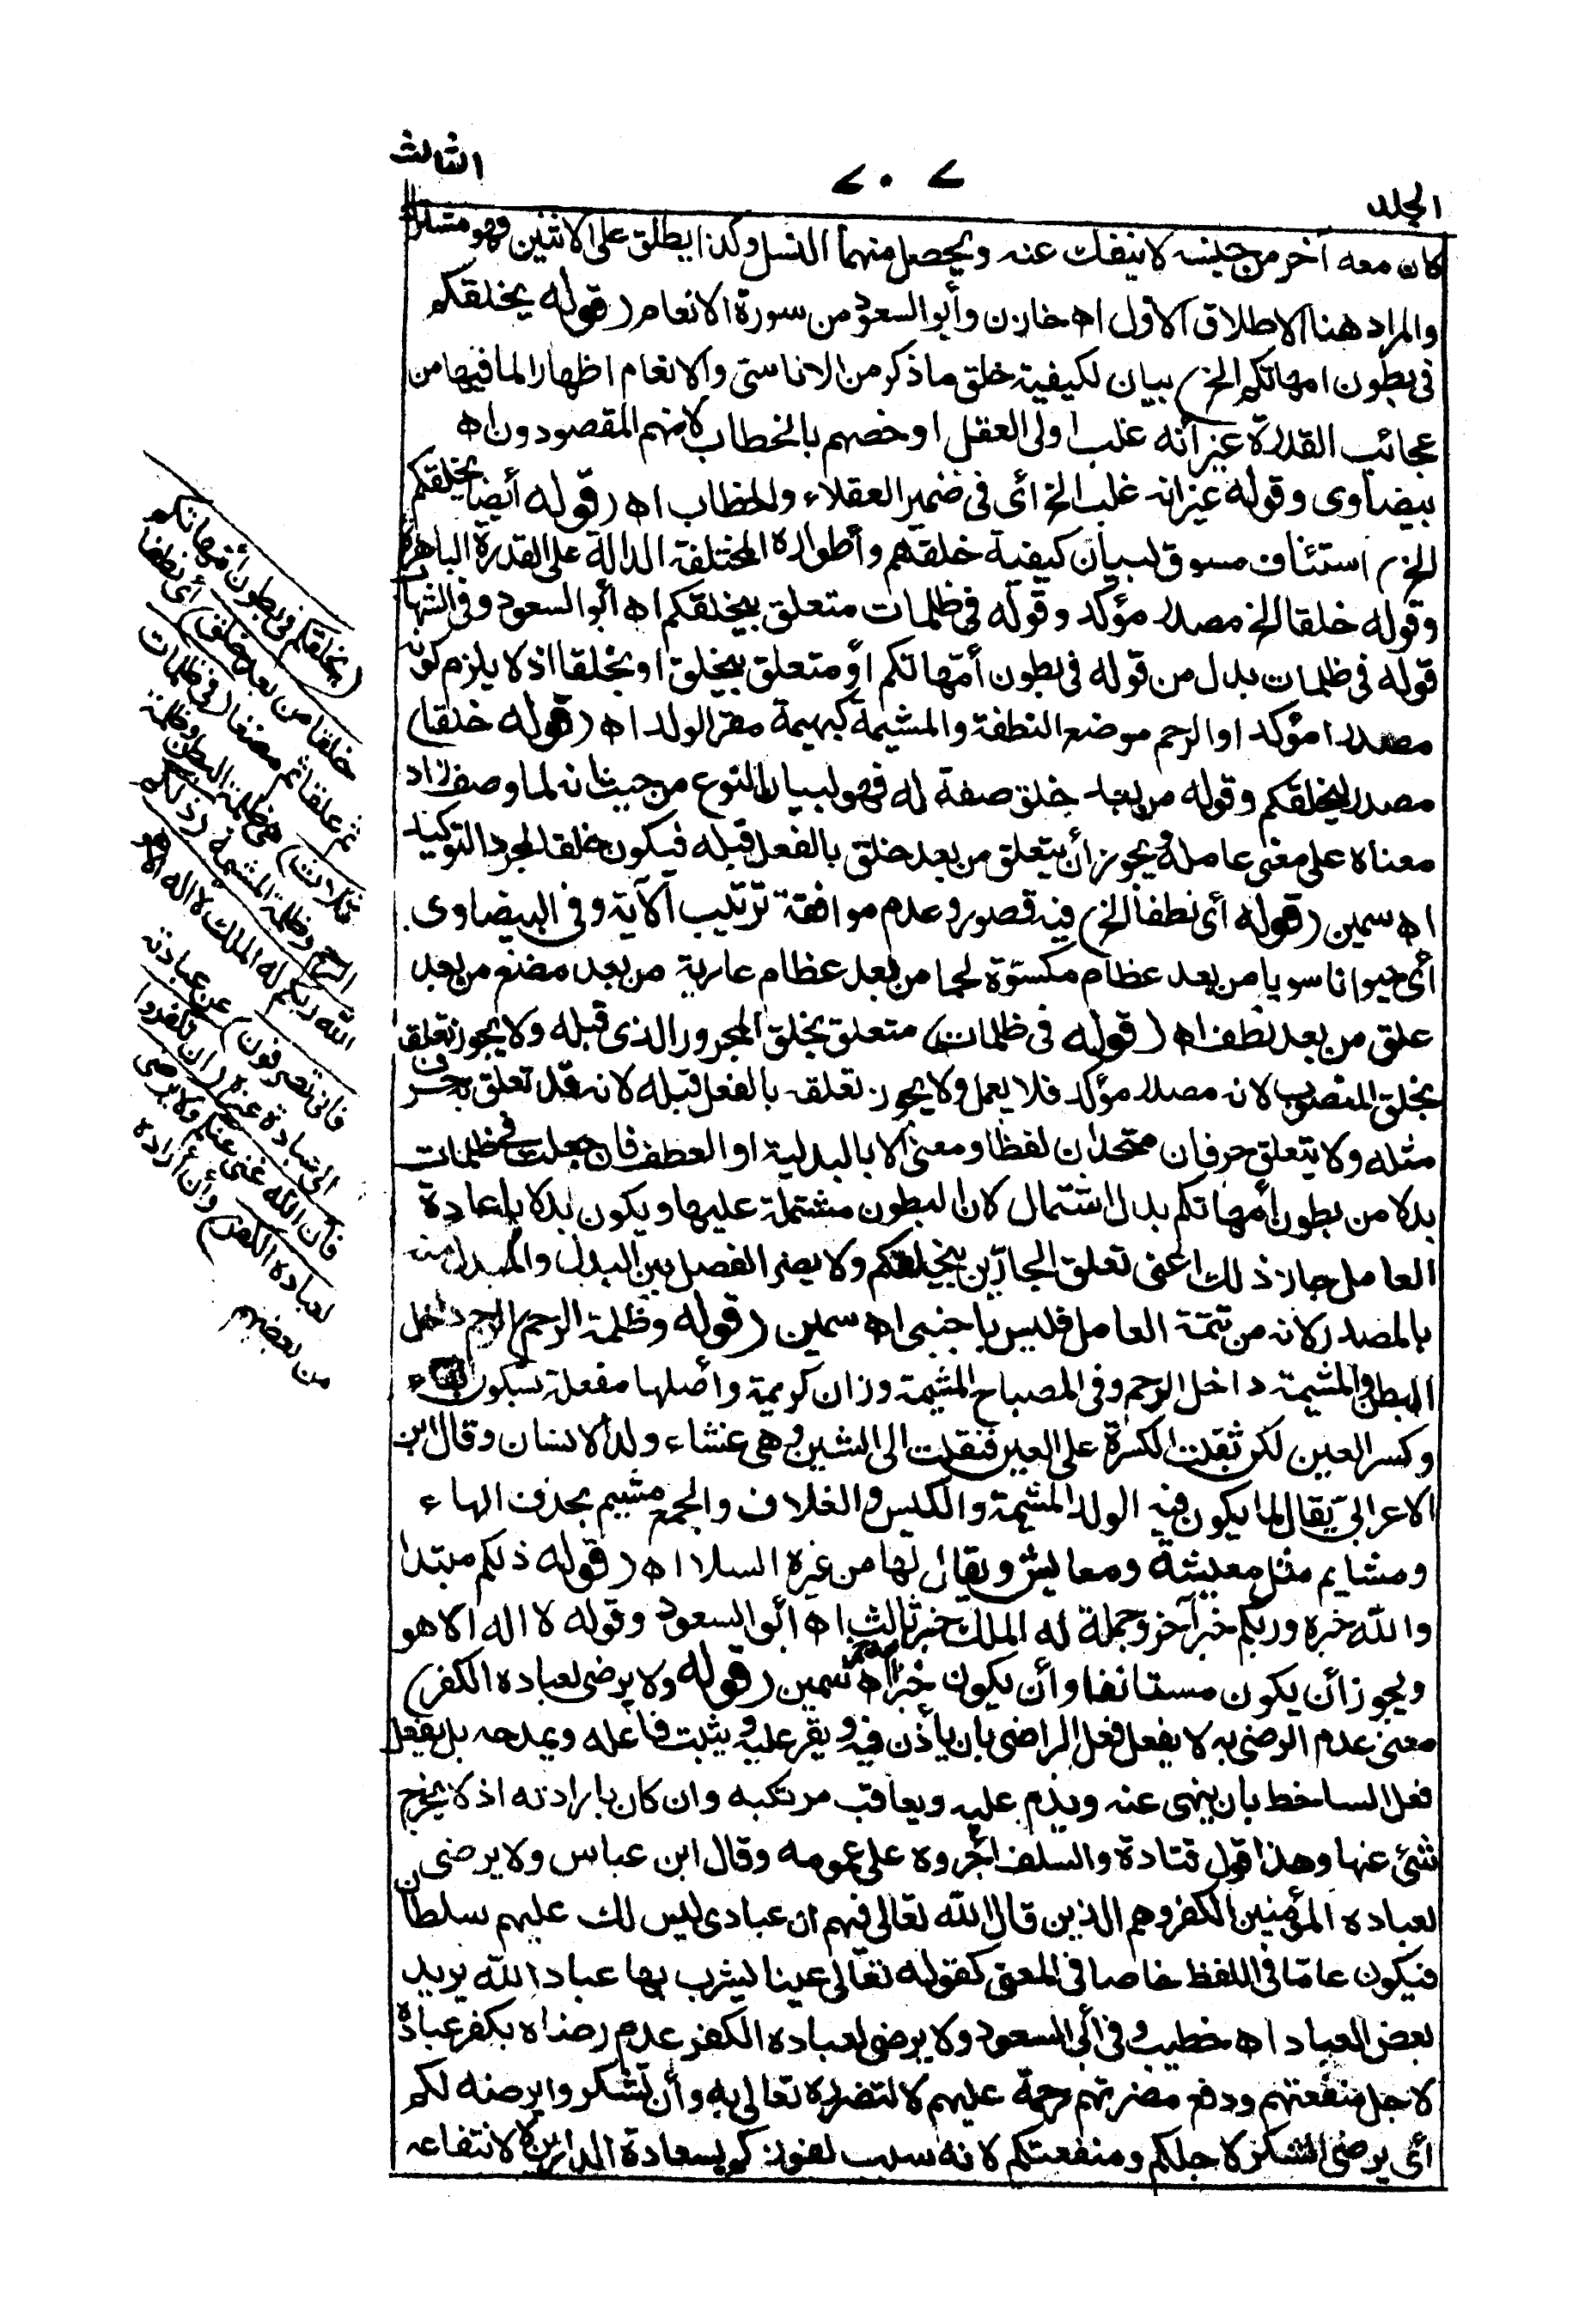 الجلد
٧٠٧
الثالث
كان معه آخر من جنسه لا ينفك عنه ويحصل منهما النسل وكذا يطلق على الاثنين فهو مشترك
والمراد هنا الاطلاق الاول اه خازن وأبو السعود من سورة الانعام (قوله يخلقكم
في بطون امهاتكم الخ) بيان لكيفية خلق ما ذكر من الاناسي والانعام اظهارا لما فيها من
عجائب القدرة غير أنه غلب اولى العقل او خصهم بالخطاب لانهم المقصودون اه
بيضاوى وقوله غير انه غلب الخ أى في ضمير العقلاء والخطاب اه (قوله أيضا يخلقكم
الخ) استئناف مسوق لبيان كيفية خلقهم وأطواره المختلفة الدالة على القدرة الباهرة
وقوله خلقا الخ مصدر مؤكد وقوله في ظلمات متعلق بيخلقكم اه أبو السعود وفي الشهاب
قوله في ظلمات بدل من قوله في بطون أمهاتكم او متعلق بيخلق او بخلقا اذ لا يلزم كونه
مصدرا مؤكدا والرحم موضع النطفة والمشيمة كبهيمة مقر الولد اه (قوله خلقا)
مصدر ليخلقكم وقوله من بعد خلق صفة له فهو لبيان النوع من حيث انه لما وصف زاد
معناه على معنى عامله ويجوز أن يتعلق من بعد خلق بالفعل قبله فيكون خلقا لمجرد التوكيد
اه سمين (قوله أى نطفا الخ) فيه قصور وعدم موافقة ترتيب الآية وفي البيضاوى
أى حيوانا سويا من بعد عظام مكسوة لحما من بعد عظام عارية من بعد مضغ من بعد
علق من بعد نطف اه (قوله في ظلمات) متعلق بخلق المجرور الذى قبله ولا يجوز تعلقه
بخلق المنصوب لانه مصدر مؤكد فلا يعمل ولا يجوز تعلقه بالفعل قبله لانه قد تعلق به حرف
مثله ولا يتعلق حرفان متحدان لفظا ومعنى الا بالبدلية او العطف فان جعلت في ظلمات
بدلا من بطون أمهاتكم بدل اشتمال لان البطون مشتملة عليها ويكون بدلا باعادة
العامل جاز ذلك اعنى تعلق الجارين بيخلقكم ولا يضر الفصل بين البدل والمبدل منه
بالمصدر لانه من تتمة العامل فليس باجنبى اه سمين (قوله وظلمة الرحم) الرحم داخل
البطن والمشيمة داخل الرحم وفي المصباح المشيمة وزان كريمة وأصلها مفعلة بسكون الفاء
وكسر العين لكن ثقلت الكسرة على العين فنقلت الى الشين وهى غشاء ولد الانسان وقال ابن
الاعرابى يقال لما يكون فيه الولد المشيمة والكيس والغلاف والجمع مشيم بحذف الهاء
ومشايم مثل معيشة ومعايش ويقال لها من غيره السلا اه (قوله ذلكم مبتدا
والله خبره وربكم خبر آخر وجملة له الملك خبر ثالث اه أبو السعود وقوله لا اله الا هو
ويجوز أن يكون مستانفا وأن يكون خبرا اه سمين (قوله ولا يرضى لعباده الكفر)
معنى عدم الرضى به لا يفعل فعل الراضى بان يأذن فيه ويقر عليه ويثبت فاعله ويمدحه بل يفعل
فعل الساخط بان ينهى عنه ويذم عليه ويعاقب مرتكبه وان كان بارادته اذ لا يخرج
شئ عنها وهذا قول قتادة والسلف اجروه على عمومه وقال ابن عباس ولا يرضى
لعباده المؤمنين الكفر وهم الذين قال الله تعالى فيهم ان عبادى ليس لك عليهم سلطان
فيكون عاما في اللفظ خاصا في المعنى كقوله تعالى عينا يشرب بها عباد الله يريد
بعض العباد اه خطيب وفي أبى السعود ولا يرضى لعباده الكفر عدم رضاه بكفر عباده
لاجل منفعتهم ودفع مضرتهم رحمة عليهم لا لتضرره تعالى به وأن تشكروا يرضه لكم
أى يرضى الشكر لاجلكم ومنفعتكم لانه سبب لفوزكم بسعادة الدارين لا لانتفاعه
(يخلقكم في بطون أمهاتكم
خلقا من بعد خلق) أى نطفا
ثم علقا ثم مضغا (في ظلمات
ثلاث) هى ظلمة البطن وظلمة
الرحم وظلمة المشيمة (ذلكم
الله ربكم له الملك لا اله الا هو
فانى تصرفون) عن عبادته
الى عبادة غيره (ان تكفروا
فان الله غنى عنكم ولا يرضى
لعباده الكفر) وأن أراده
من بعضهم